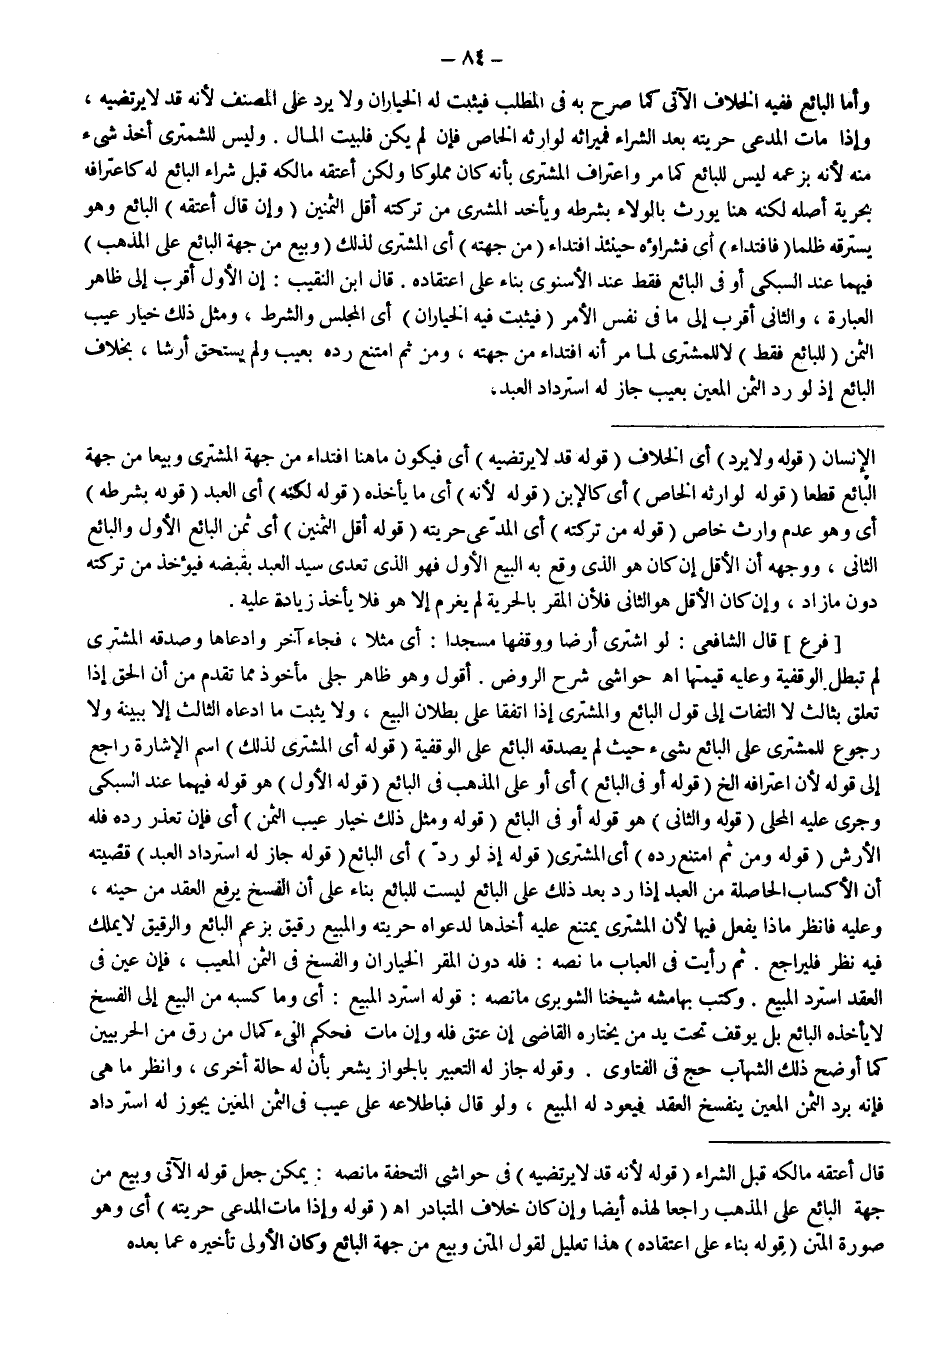 — ٨٤ —
وأما البائع ففيه الخلاف الآتى كما صرح به فى المطلب فيثبت له الخياران ولا يرد على المصنف لأنه قد لايرتضيه ،
وإذا مات المدعى حريته بعد الشراء فميراثه لوارثه الخاص فإن لم يكن فلبيت المال . وليس للشمترى أخذ شىء
منه لأنه بزعمه ليس للبائع كما مر واعتراف المشترى بأنه كان مملوكا ولكن أعتقه مالكه قبل شراء البائع له كاعترافه
بحرية أصله لكنه هنا يورث بالولاء بشرطه ويأخد المشترى من تركته أقل الثمنين ( وإن قال أعتقه ) البائع وهو
يسترقه ظلما ( فافتداء ) أى فشراؤه حينئذ افتداء ( من جهته ) أى المشترى لذلك ( وبيع من جهة البائع على المذهب )
فيهما عند السبكى أو فى البائع فقط عند الأسنوى بناء على اعتقاده . قال ابن النقيب : إن الأول أقرب إلى ظاهر
العبارة ، والثانى أقرب إلى ما فى نفس الأمر ( فيثبت فيه الخياران ) أى المجلس والشرط ، ومثل ذلك خيار عيب
الثمن ( للبائع فقط ) لاللمشترى لما مر أنه افتداء من جهته ، ومن ثم امتنع رده بعيب ولم يستحق أرشا ، بخلاف
البائع إذ لو رد الثمن المعين بعيب جاز له استرداد العبد،
الإنسان ( قوله ولايرد ) أى الخلاف ( قوله قد لايرتضيه ) أى فيكون ماهنا افتداء من جهة المشترى وبيعا من جهة
البائع قطعا ( قوله لوارثه الخاص ) أى كالإبن ( قوله لأنه ) أى ما يأخذه ( قوله لكنه ) أى العبد ( قوله بشرطه )
أى وهو عدم وارث خاص ( قوله من تركته ) أى المدّعى حريته ( قوله أقل الثمنين ) أى ثمن البائع الأول والبائع
الثانى ، ووجهه أن الأقل إن كان هو الذى وقع به البيع الأول فهو الذى تعدى سيد العبد بقبضه فيؤخذ من تركته
دون مازاد ، وإن كان الأقل هوالثانى فلأن المقر بالحرية لم يغرم إلا هو فلا يأخذ زيادة علية .
[ فرع ] قال الشافعى : لو اشترى أرضا ووقفها مسجدا : أى مثلا ، فجاء آخر وادعاها وصدقه المشترى
لم تبطل الوقفية وعليه قيمتها اه حواشى شرح الروض . أقول وهو ظاهر جلى مأخوذ مما تقدم من أن الحق إذا
تعلق بثالث لا التفات إلى قول البائع والمشترى إذا اتفقا على بطلان البيع ، ولا يثبت ما ادعاه الثالث إلا ببينة ولا
رجوع للمشترى على البائع بشىء حيث لم يصدقه البائع على الوقفية ( قوله أى المشترى لذلك ) اسم الإشارة راجع
إلى قوله لأن اعترافه الخ ( قوله أو فى البائع ) أى أو على المذهب فى البائع ( قوله الأول ) هو قوله فيهما عند السبكى
وجرى عليه المحلى ( قوله والثانى ) هو قوله أو فى البائع ( قوله ومثل ذلك خيار عيب الثمن ) أى فإن تعذر رده فله
الأرش ( قوله ومن ثم امتنع رده ) أى المشترى ( قوله إذ لو ردّ ) أى البائع ( قوله جاز له استرداد العبد ) قضيته
أن الأكساب الحاصلة من العبد إذا رد بعد ذلك على البائع ليست للبائع بناء على أن الفسخ يرفع العقد من حينه ،
وعليه فانظر ماذا يفعل فيها لأن المشترى يمتنع عليه أخذها لدعواه حريته والمبيع رقيق بزعم البائع والرقيق لايملك
فيه نظر فليراجع . ثم رأيت فى العباب ما نصه : فله دون المقر الخياران والفسخ فى الثمن المعيب ، فإن عين فى
العقد استرد المبيع . وكتب بهامشه شيخنا الشوبرى مانصه : قوله استرد المبيع : أى وما كسبه من البيع إلى الفسخ
لايأخذه البائع بل يوقف تحت يد من يختاره القاضى إن عتق فله وإن مات فحكم الفىء كمال من رق من الحربيين
كما أوضح ذلك الشهاب حج فى الفتاوى . وقوله جاز له التعبير بالجواز يشعر بأن له حالة أخرى ، وانظر ما هى
فإنه برد الثمن المعين ينفسخ العقد فيعود له المبيع ، ولو قال فباطلاعه على عيب فى الثمن المعين يجوز له استرداد
قال أعتقه مالكه قبل الشراء ( قوله لأنه قد لايرتضيه ) فى حواشى التحفة مانصه : يمكن جعل قوله الآتى وبيع من
جهة البائع على المذهب راجعا لهذه أيضا وإن كان خلاف المتبادر اه ( قوله وإذا مات المدعى حريته ) أى وهو
صورة المتن ( قوله بناء على اعتقاده ) هذا تعليل لقول المتن وبيع من جهة البائع وكان الأولى تأخيره عما بعده